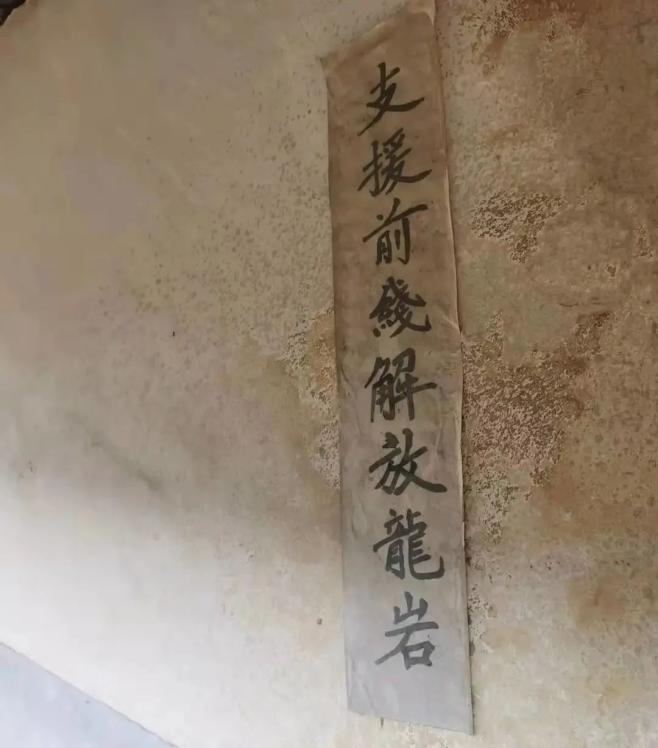 支援前綫解放龍岩